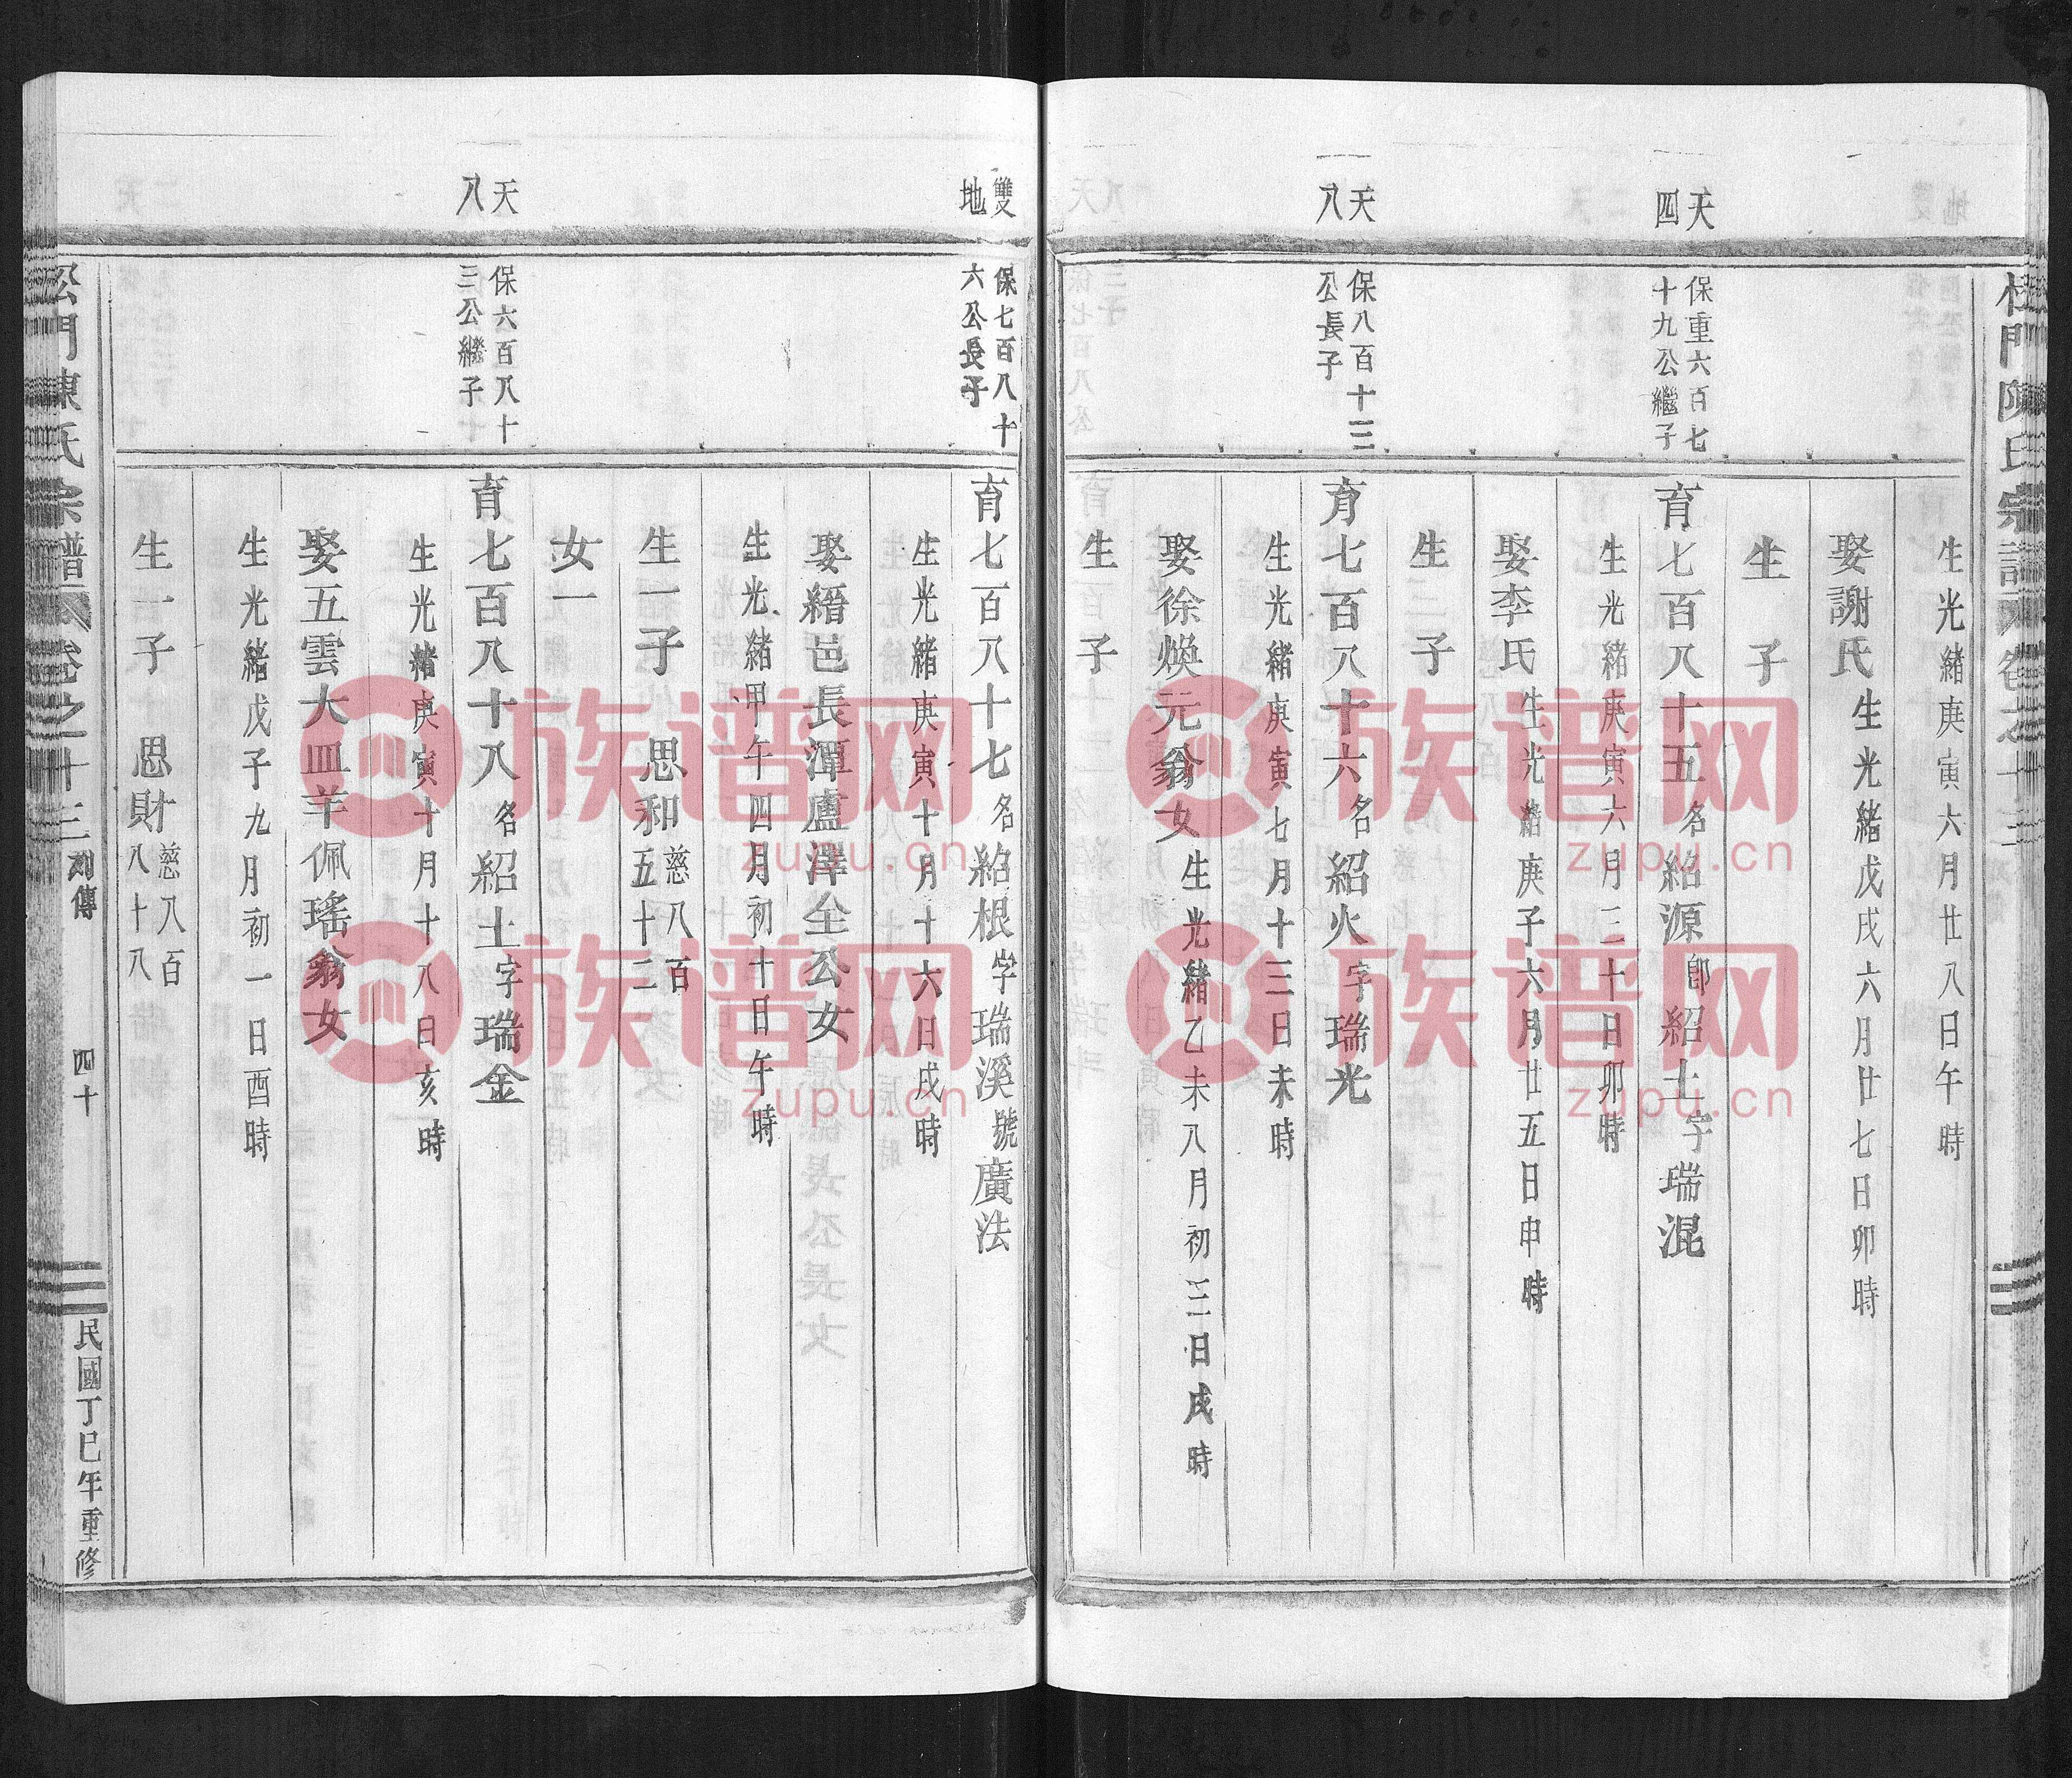 生光緒庚寅六月廿八日午時
娶謝氏生光緒戊戌六月廿七日卯時
生　子
天四
保重六百七十九公繼子
育七百八十五名紹源郎紹土字瑞混
生光緒庚寅六月三十日卯時
娶李氏生光緒庚子六月廿五日申時
生　子
天八
保八百十三公長子
育七百八十六名紹火字瑞光
生光緒庚寅七月十三日未時
娶徐煥元翁女生光緒乙未八月初三日戌時
生　子
雙地
保七百八十六公長子
育七百八十七名紹根字瑞溪號廣法
生光緒庚寅十月十六日戌時
娶縉邑長潭盧澤全公女
生光緒甲午四月初十日午時
生一子　思和慈八百五十二
女一
天八
保六百八十三公繼子
育七百八十八名紹土字瑞金
生光緒庚寅十月十八日亥時
娶五雲大皿羊佩瑤翁女
生光緒戊子九月初一日酉時
生一子　思財慈八百八十八
門陳氏宗譜　卷之十三　列傳　四十　民國丁巳年重修
族谱网
zupu.cn
族谱网
zupu.cn
族谱网
zupu.cn
族谱网
zupu.cn